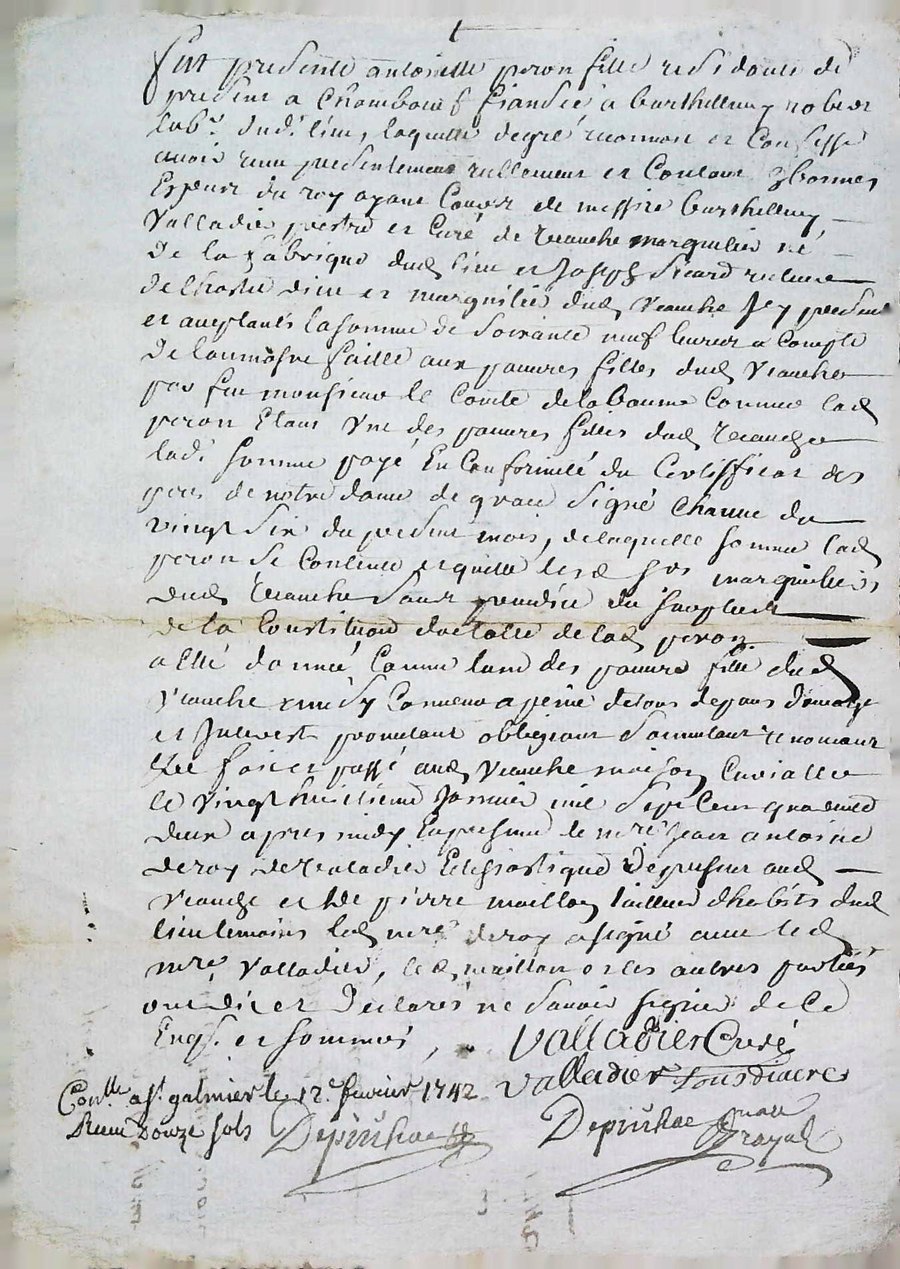 fut presente antoinette peron fille residante de
present a Chambœuf fiansée a barthellemy robert
lab.r dud.t lieu, laquelle degré reconnoit et confesse
avoir reçu presentement reellement et contant en bonnes
Especes du roy ayant cours de messire barthellemy
Valladier prestre et curé de Veauche marguilier né
De la fabrique dud lieu et Joseph Sicard recteur
de lhostel dieu et marguilié dud Veauche Jcy present
et acceptants la somme de soixante neuf livres a compte
De laumosne faitte aux pauvres filles dud Veauche
par feu monsieur le Comte de la baume Comme lad
peron Etant Vne des pauvres filles dud Veauche
lad. somme payé En Conformité du Certifficat des
peres de notre dame de grace signé Charme du
vingt six du present mois, de laquelle somme lad
peron se contente et quitte lesd srs marguiliers
dud Veauche sans prejudice du surplus
de la Constitution dotalle de lad peron
a Elle donnée Comme lune des pauvres fille dud
Veauche ainsy Convenu a peine de tous depans domage
et Interest promettant obligeant soumettant renonceant
&ce fait et passé aud Veauche maison Curialle
le vingt huitieme Janvier mil sept cent quarente
deux apres midy En presence de mre Jean antoine
deroy de Valadier Eclesiastique De present aud
Veauche et de pierre maillon tailleur dhabits dud
lieu temoins led mre deroy a signé avec led
mre Valladier, led maillon et les autres parties
ont dit et Declarés ne savoir signer de ce
Enqs. et sommés
Valladier Curé
Valladier sousdiacre
Con.lle a s.t galmier le 12.e fevrier 1742
Reçu Douze sols
Depiuhac
Depiuhac
not.re royal